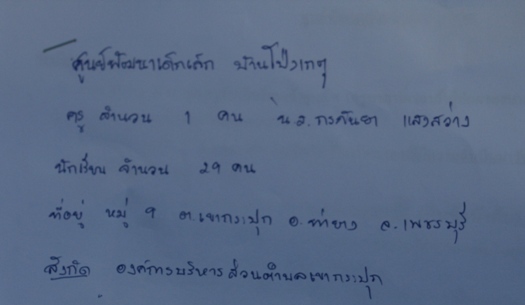 ศูนย์พัฒนาเด็กเล็ก บ้านโป่งเกตุ
ครู จำนวน 1 คน น.ส. กงกันยา แสงสว่าง
นักเรียน จำนวน 29 คน
ที่อยู่ หมู่ 9 ต.เขากระปุก อ.ท่ายาง จ.เพชรบุรี
สังกัด องค์การบริหารส่วนตำบลเขากระปุก